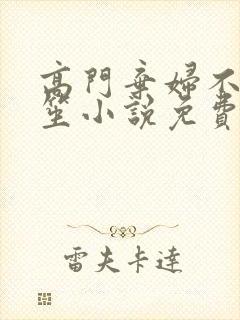 高門棄婦不
笙小說免費
雷夫卡達